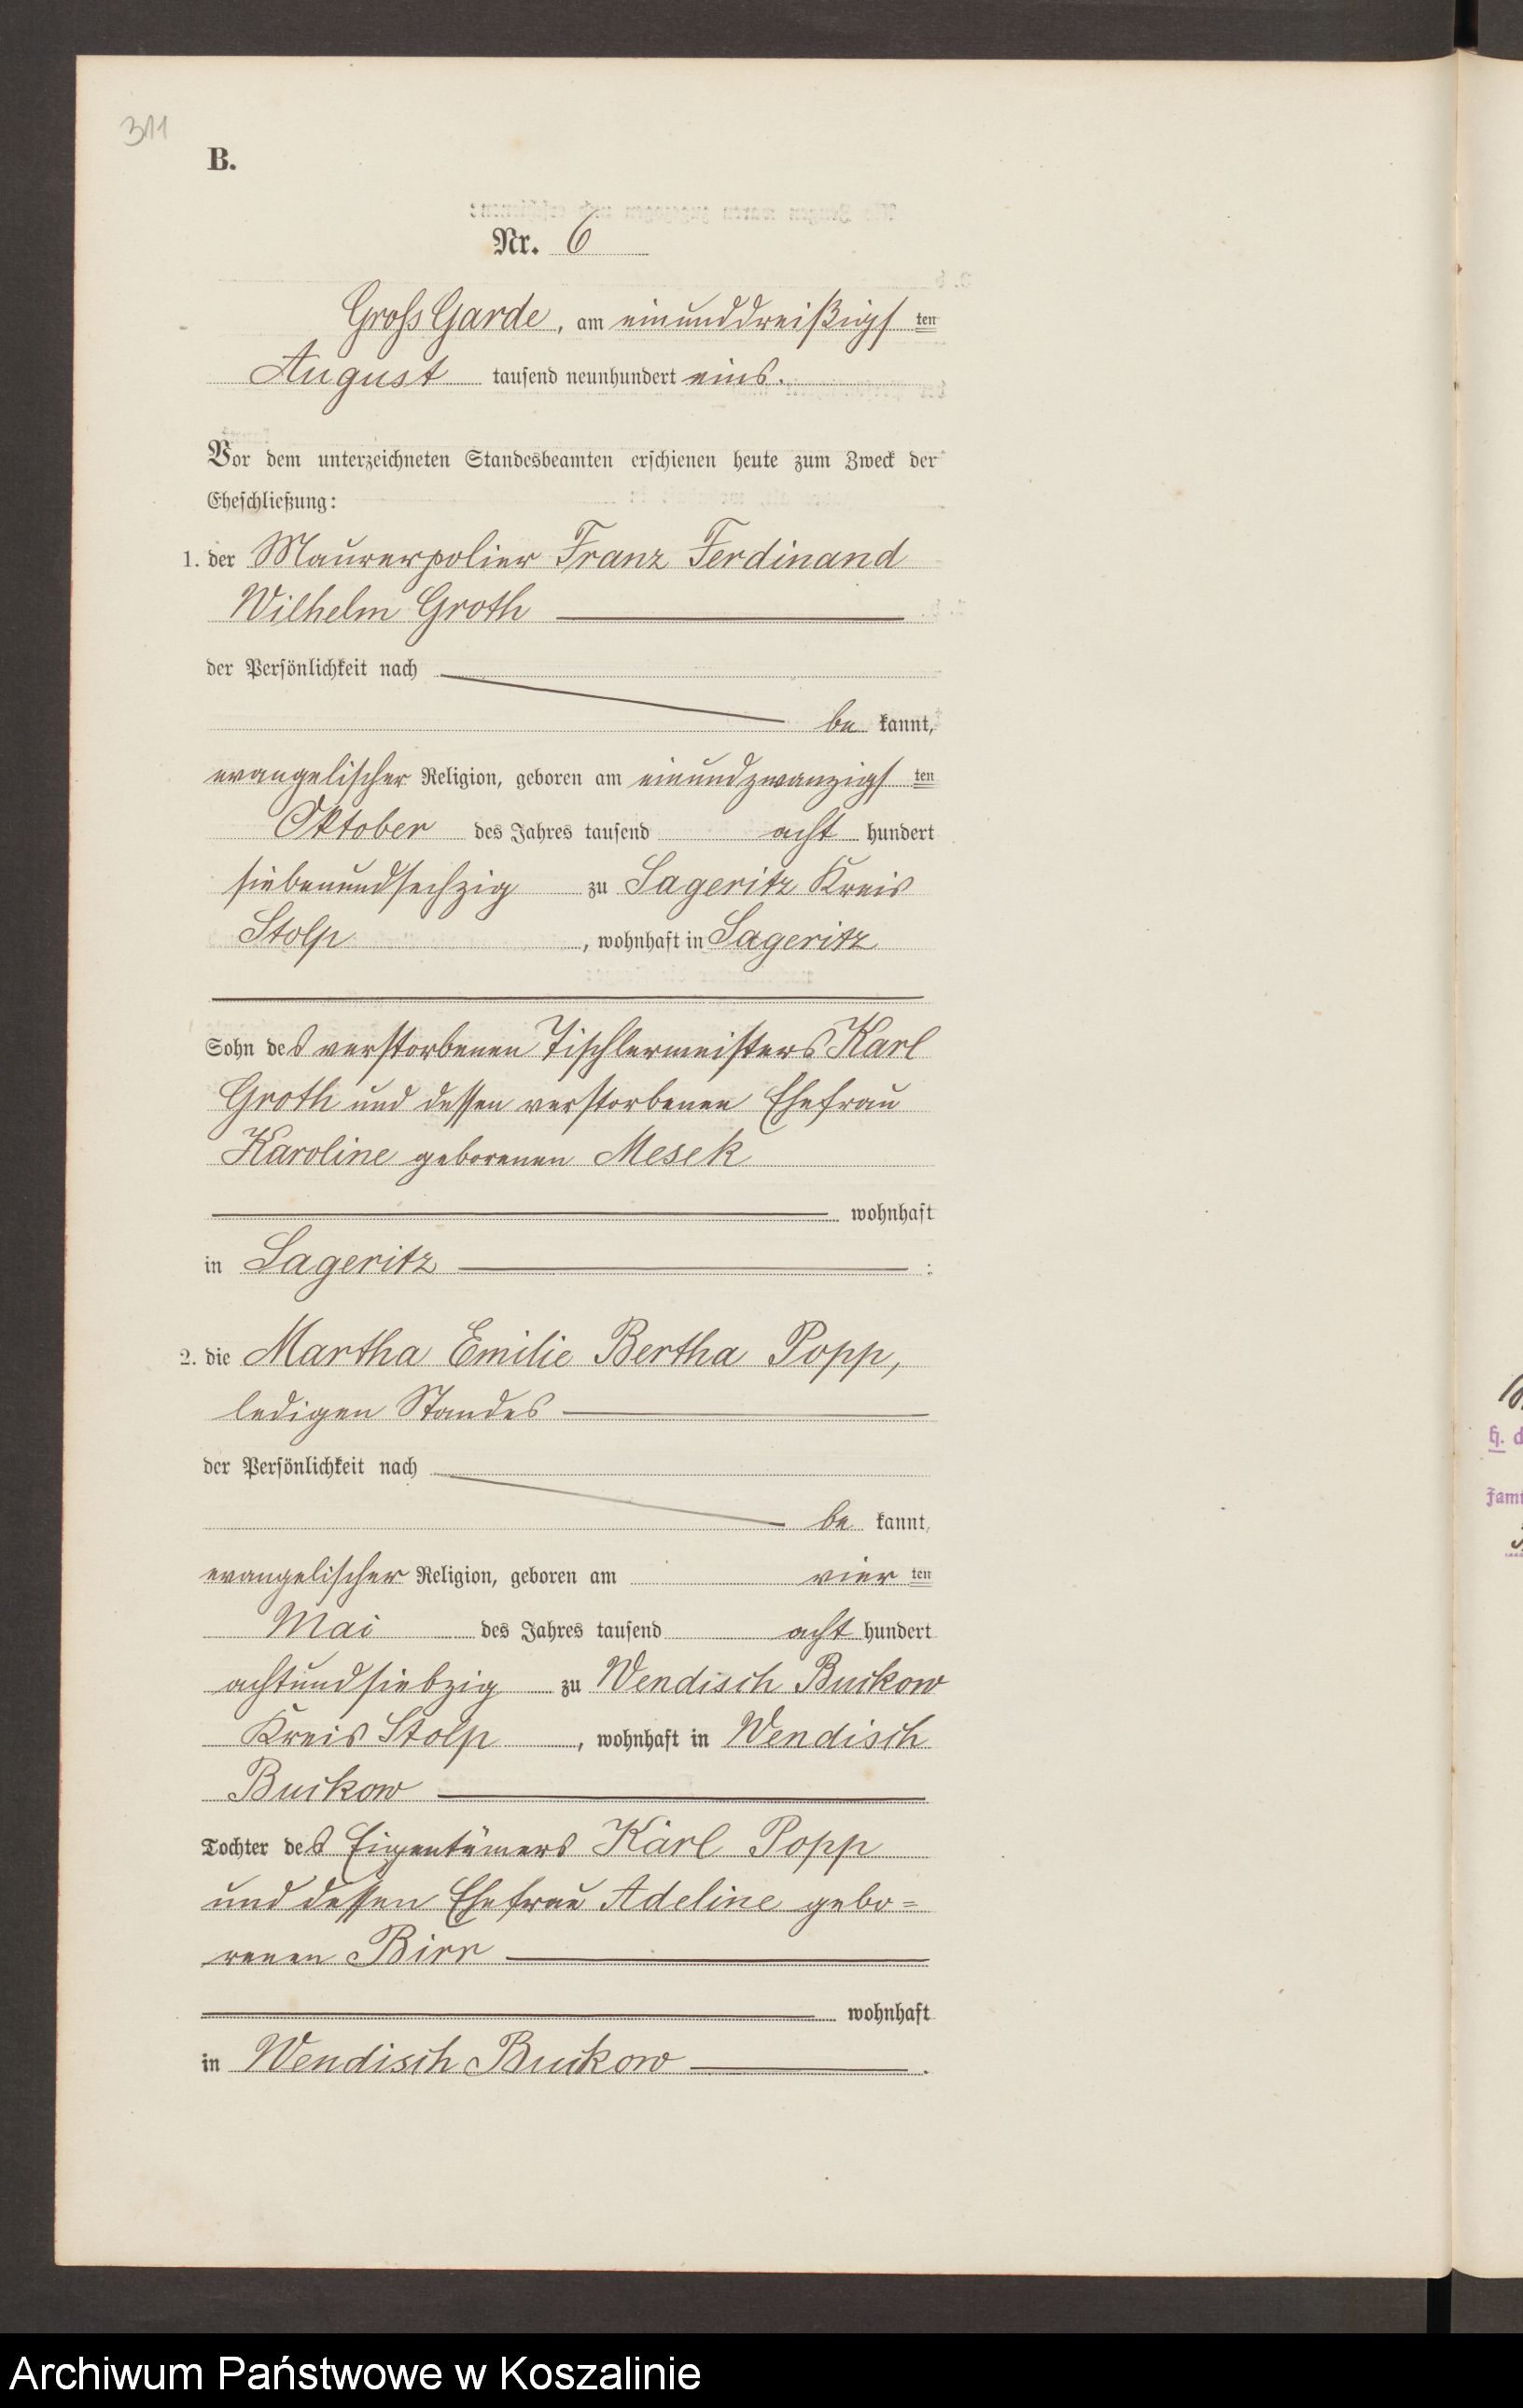 311
B.
Nr. 6
Gross Garde, am einunddreißigs ten
August tausend neunhundert eins.
Vor dem unterzeichneten Standesbeamten erschienen heute zum Zweck der
Eheschließung:
1. der Maurerpolier Franz Ferdinand
Wilhelm Groth
der Persönlichkeit nach
be kannt,
evangelischer Religion, geboren am einundzwanzigs ten
Oktober des Jahres tausend acht hundert
siebenundsechzig zu Lageritz Kreis
Stolp, wohnhaft in Sageritz
Sohn des verstorbenen Tischlermeisters Karl
Groth und dessen verstorbenen Ehefrau
Karoline geborenen Mesek
wohnhaft
in Sageritz :
2. die Martha Emilie Bertha Popp,
ledigen Standes
der Persönlichkeit nach
be kannt,
evangelischer Religion, geboren am vier ten
Mai des Jahres tausend acht hundert
achtundsiebzig zu Wendisch Buckow
Kreis Stolp, wohnhaft in Wendisch
Buckow
Tochter des Eigentümers Karl Popp
und dessen Ehefrau Adeline gebo=
renen Birr
wohnhaft
in Wendisch Buckow.
h. d
Fam
Archiwum Państwowe w Koszalinie